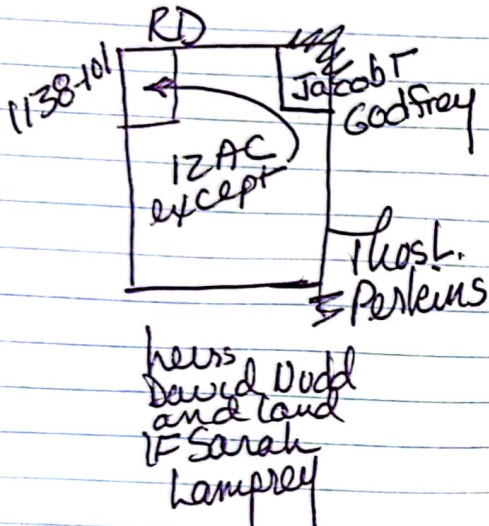 RD
1138-101
Jacob T
Godfrey
12 AC
except
Thos L.
Perkins
heirs
David Dodd
and land
IF Sarah
Lamprey